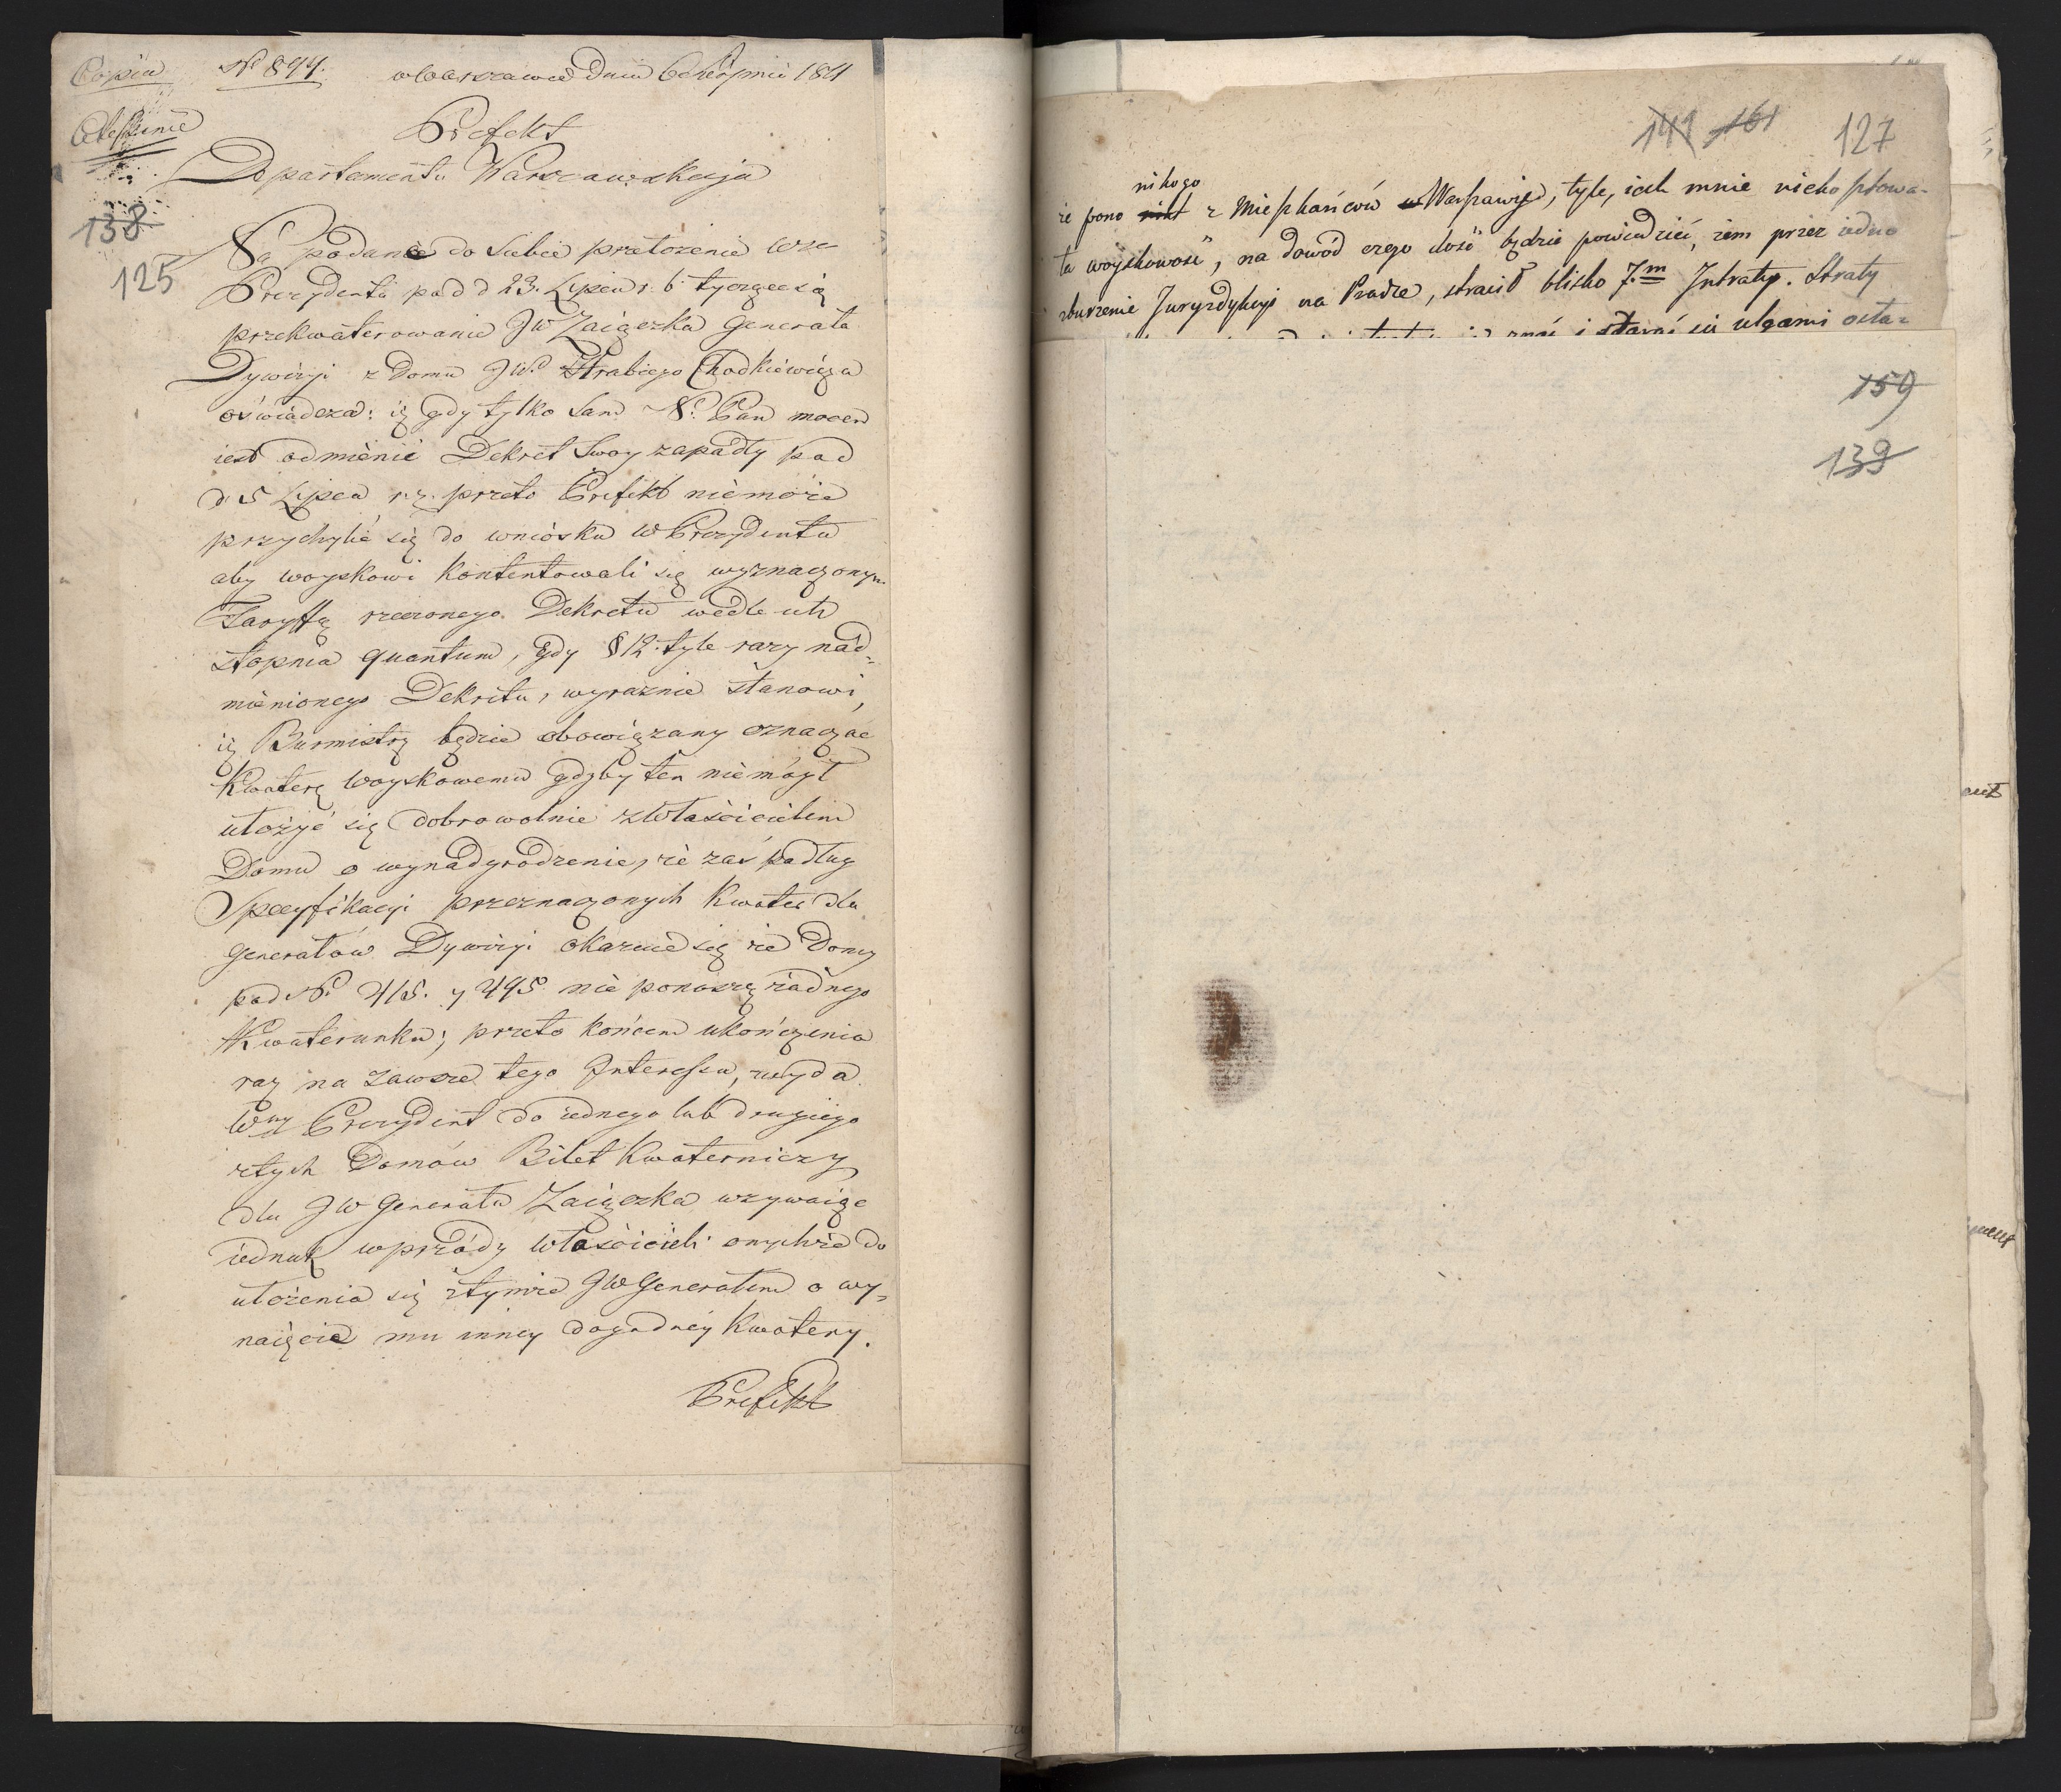 Copia N° 894. w Warszawie Dnia 6 Sierpnia 1811
Prefekt
Departamentu Warszawskiego
138
125
Na podane do siebie przełożenie Wgo
Prezydenta pod d 23. Lipca r. b. tyczące się
przekwaterowania JW Zaiączka Generała
Dywizyi z Domu JWo Hrabiego Chodkiewicza
oświadcza: iż gdy tylko Sam N. Pan mocen
iest odmienić Dekret Swoy zapadły pod
d. 5 Lipca r. z. przeto Prefekt niemoże
przychylić się do wniosku W Prezydenta
aby woyskowi kontentowali się wyznaczonym
Taryffą rzeczonego Dekretu wedle ich
stopnia quantum, gdy § 12. tyle razy nad=
mienionego Dekretu, wyraznie stanowi,
iż Burmistrz będzie obowiązany oznaczać
Kwaterę Woyskowemu gdyby ten niemógł
ułożyć się dobrowolnie z Właścicielem
Domu o wynadgrodzenie, że zaś podług
Specyfikacyi przeznaczonych Kwater dla
Generałów Dywizyi okazuie się że Domy
pod N° 415. y 495 nie ponoszą żadnego
Kwaterunku; przeto końcem ukończenia
raz na zawsze tego Interessu, wyda
Wny Prezydent do iednego lub drugiego
z tych Domów Bilet Kwaterniczy
dla JW Generała Zaiączka wzywaiąc
iednak wprzódy Właścicieli onychże do
ułożenia się z tymże JW Generałem o wy=
naięcie mu inney dogodney Kwatery.
Prefekt
149 161 127
nikogo
że pono nikt z Mieszkańców w Warszawie, tyle, iak mnie niekosztowa-
ła woyskowość, na dowód czego dość będzie powiedzieć, żem przez iedno
zburzenie Juryzdykcyi na Pradze, stracił blisko 7.m Intraty. Straty
159
139